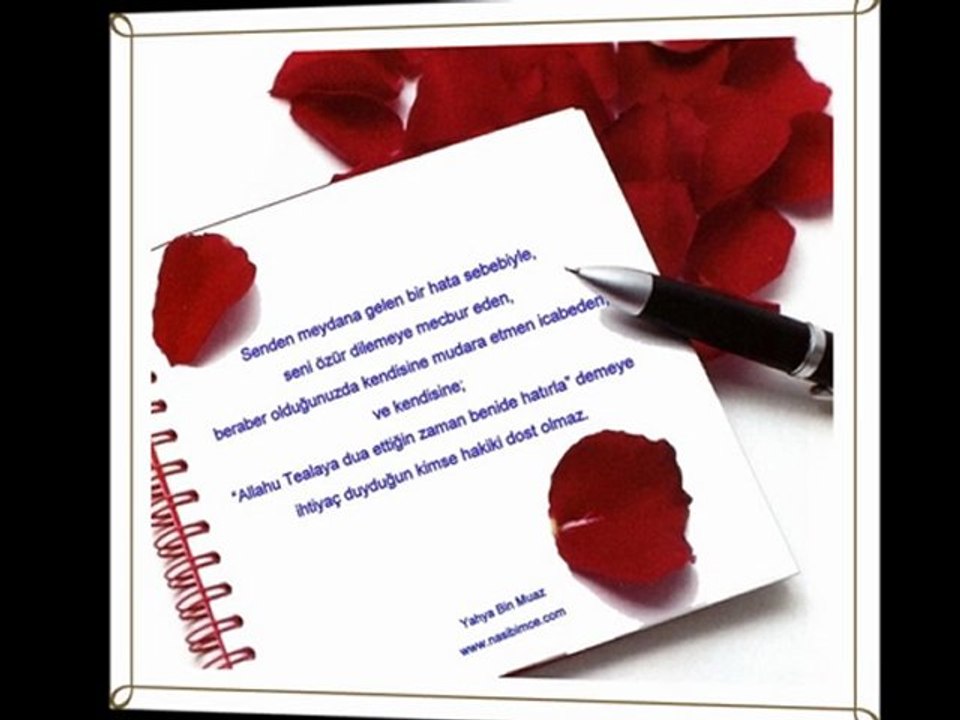 Senden meydana gelen bir hata sebebiyle,
seni özür dilemeye mecbur eden,
beraber olduğunuzda kendisine mudara etmen icabeden,
ve kendisine;
"Allahu Tealaya dua ettiğin zaman benide hatırla" demeye
ihtiyaç duyduğun kimse hakiki dost olmaz.
Yahya Bin Muaz
www.nasibimce.com